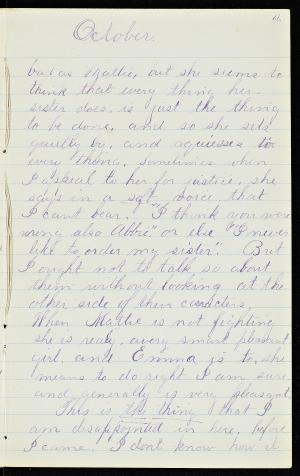 October.
bad as Mattie, but she seems to
think that every thing her
sister does, is just the thing
to be done, and so she sits
quietly by, and aquiesses to
every thing, sometimes when
I appeal to her for justice, she
says in a soft voice, that
I can't bear. "I think you were
wrong also Abbie" or else "I never
like to order my sister". But
I ought not to talk so about
them without looking at the
other side of their caracters,
When Mattie is not fighting
she is realy, a very smart pleasant
girl, and Emma is to, she
means to do right I am sure
and generally is very pleasant.
This is the thing that I
am disappointed in here, before
I came, I dont know how it